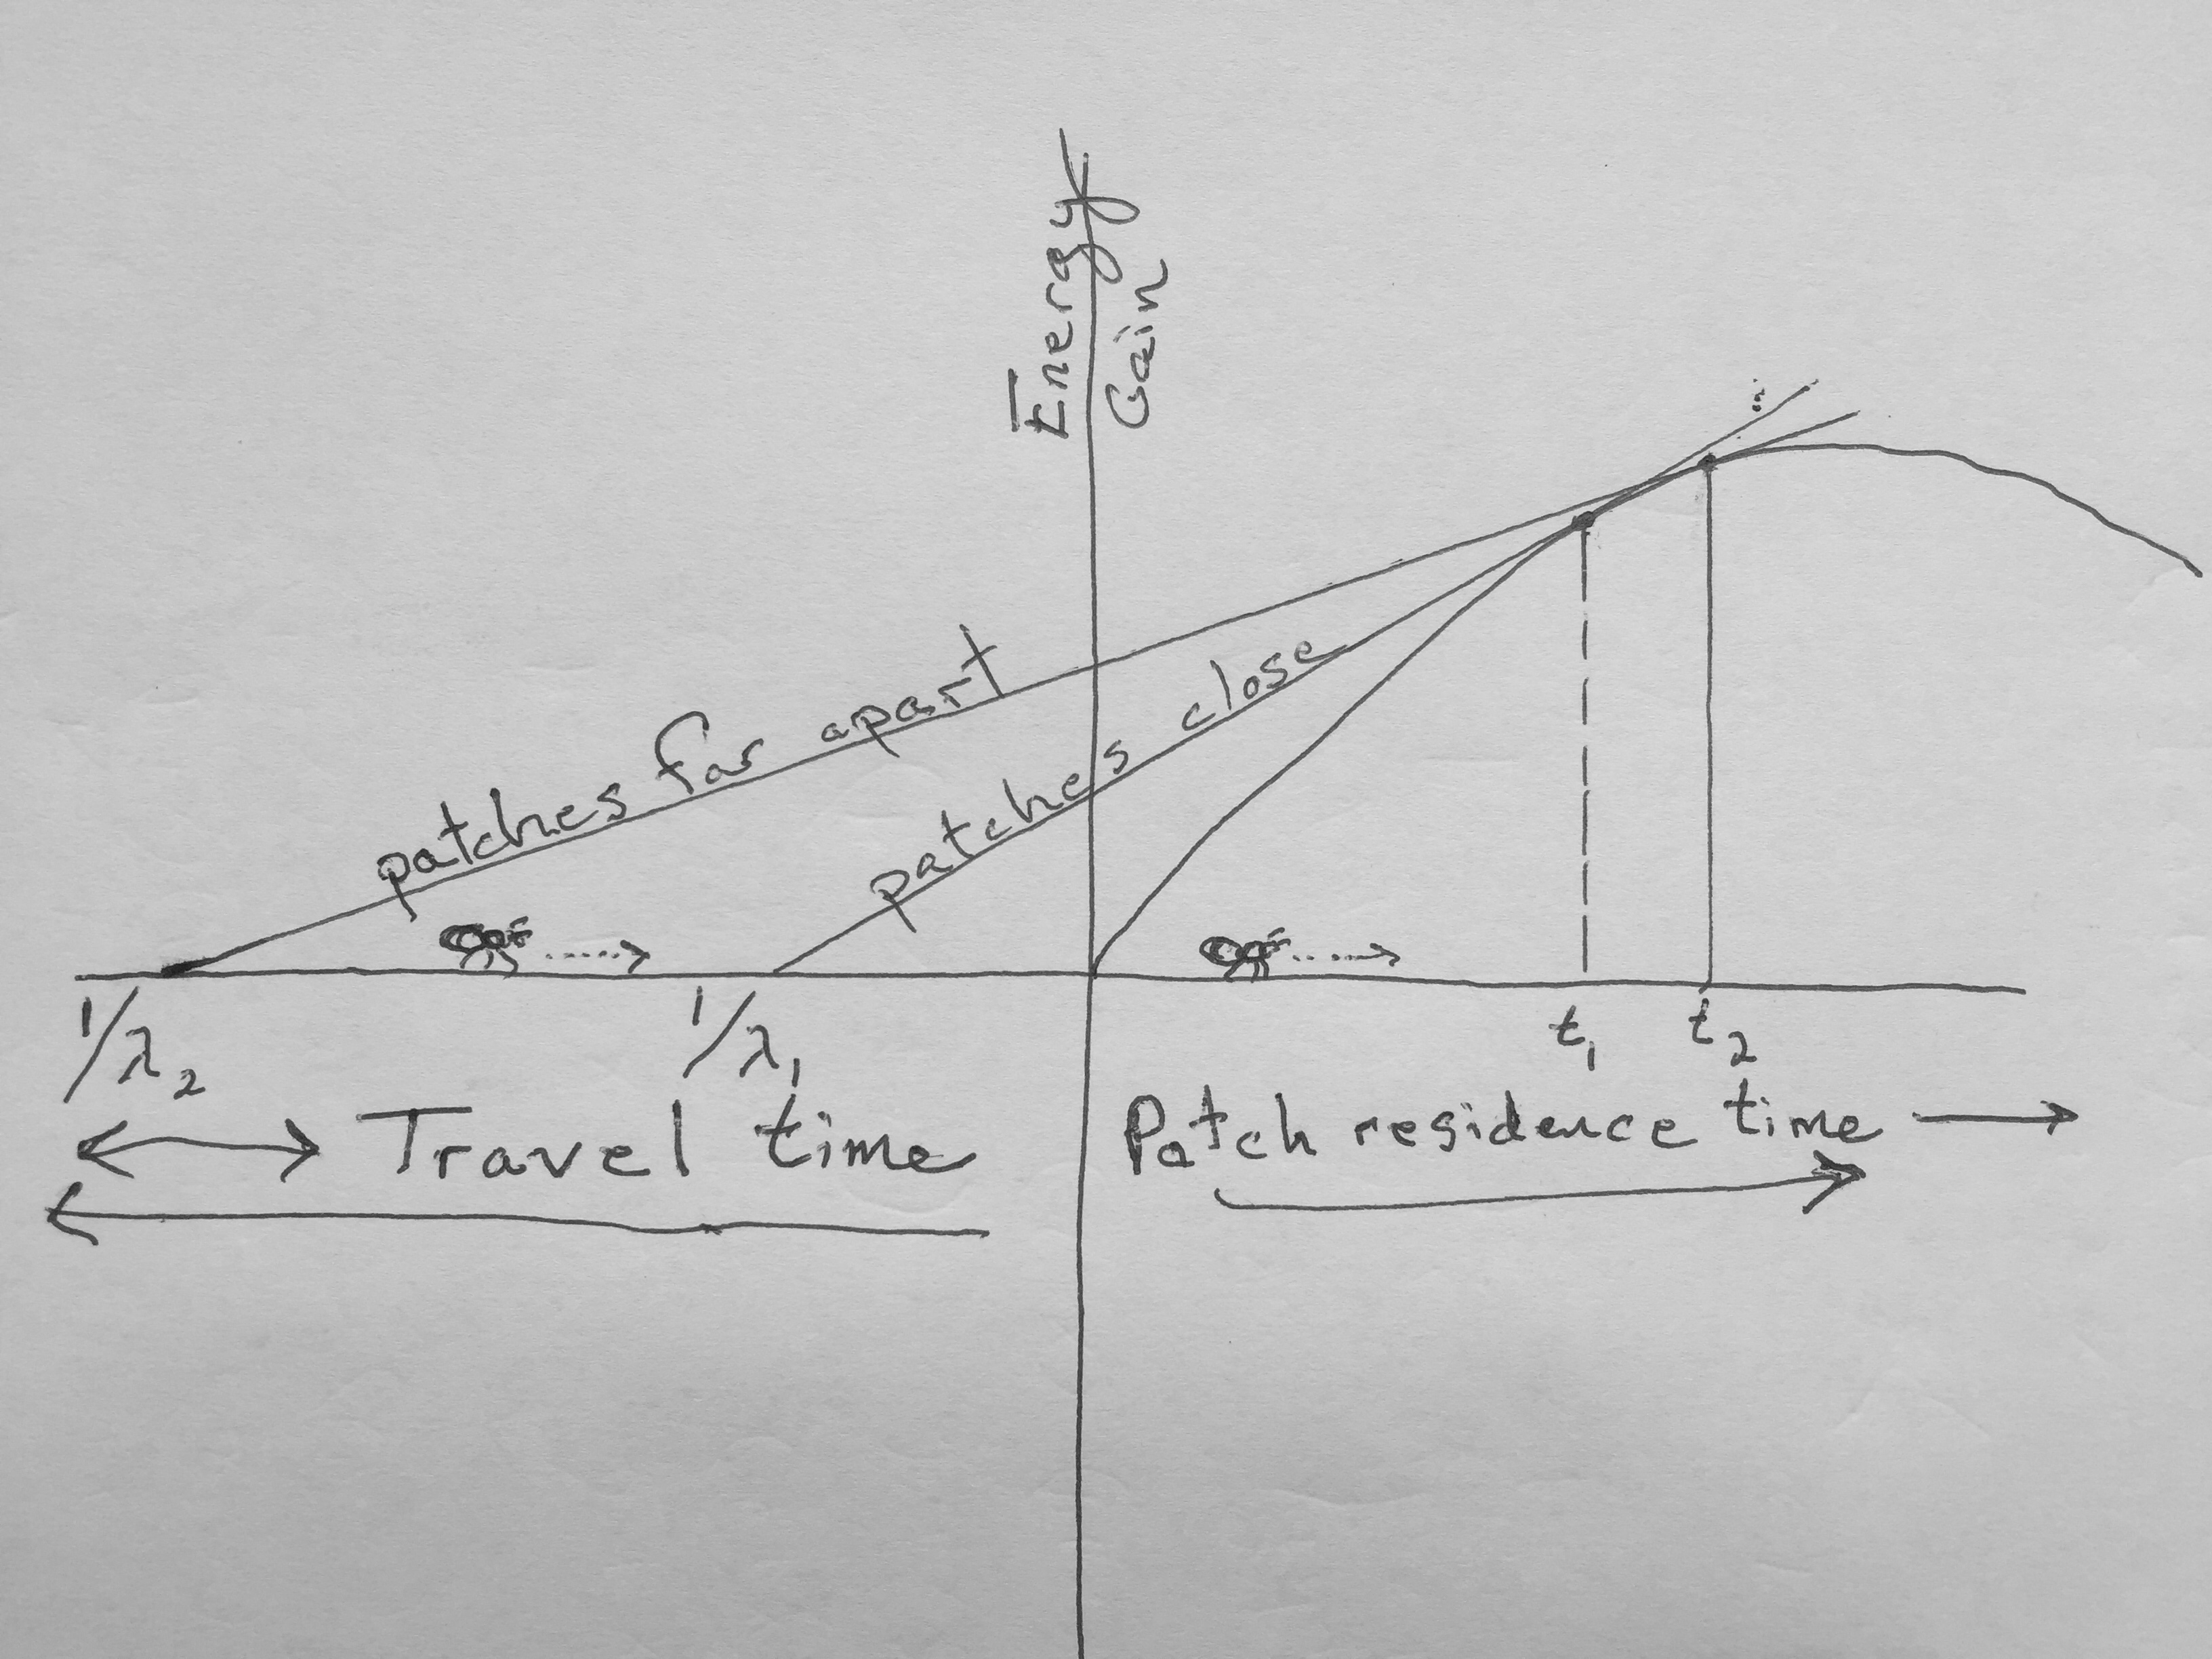 Energy
Gain
patches far apart
patches close
1/λ₂
1/λ₁
t₁
t₂
Travel time
Patch residence time